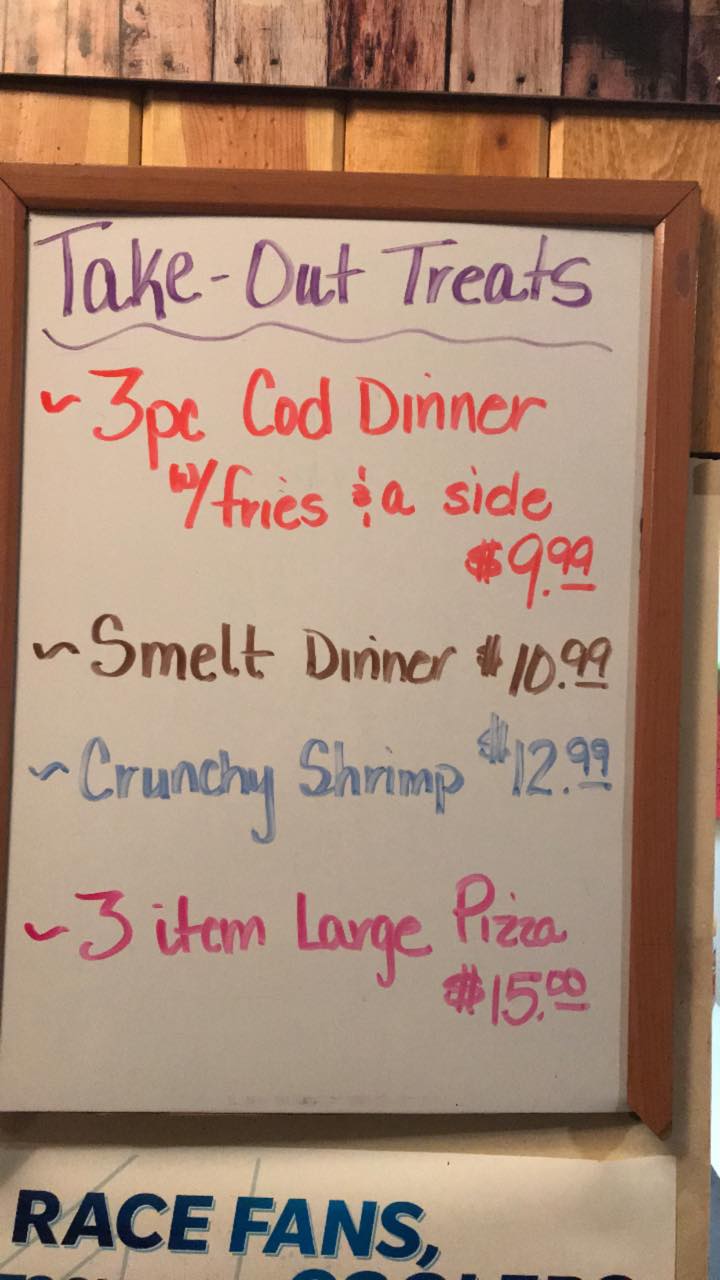 Take-Out Treats
~ 3pc Cod Dinner
w/fries & a side
$9.99
~ Smelt Dinner $10.99
~ Crunchy Shrimp $12.99
~ 3 item Large Pizza
$15.00
RACE FANS,